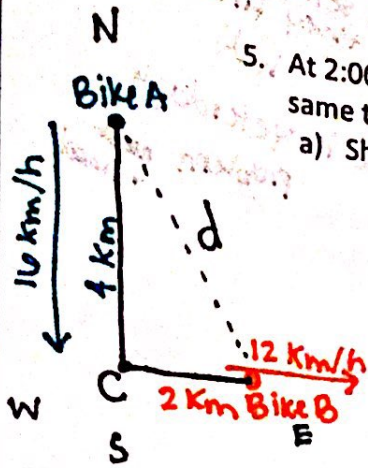 N
5. At 2:0
same t
a) Sh
Bike A
16 km/h
4 km
d
12 km/h
C
2 km Bike B
W
E
S